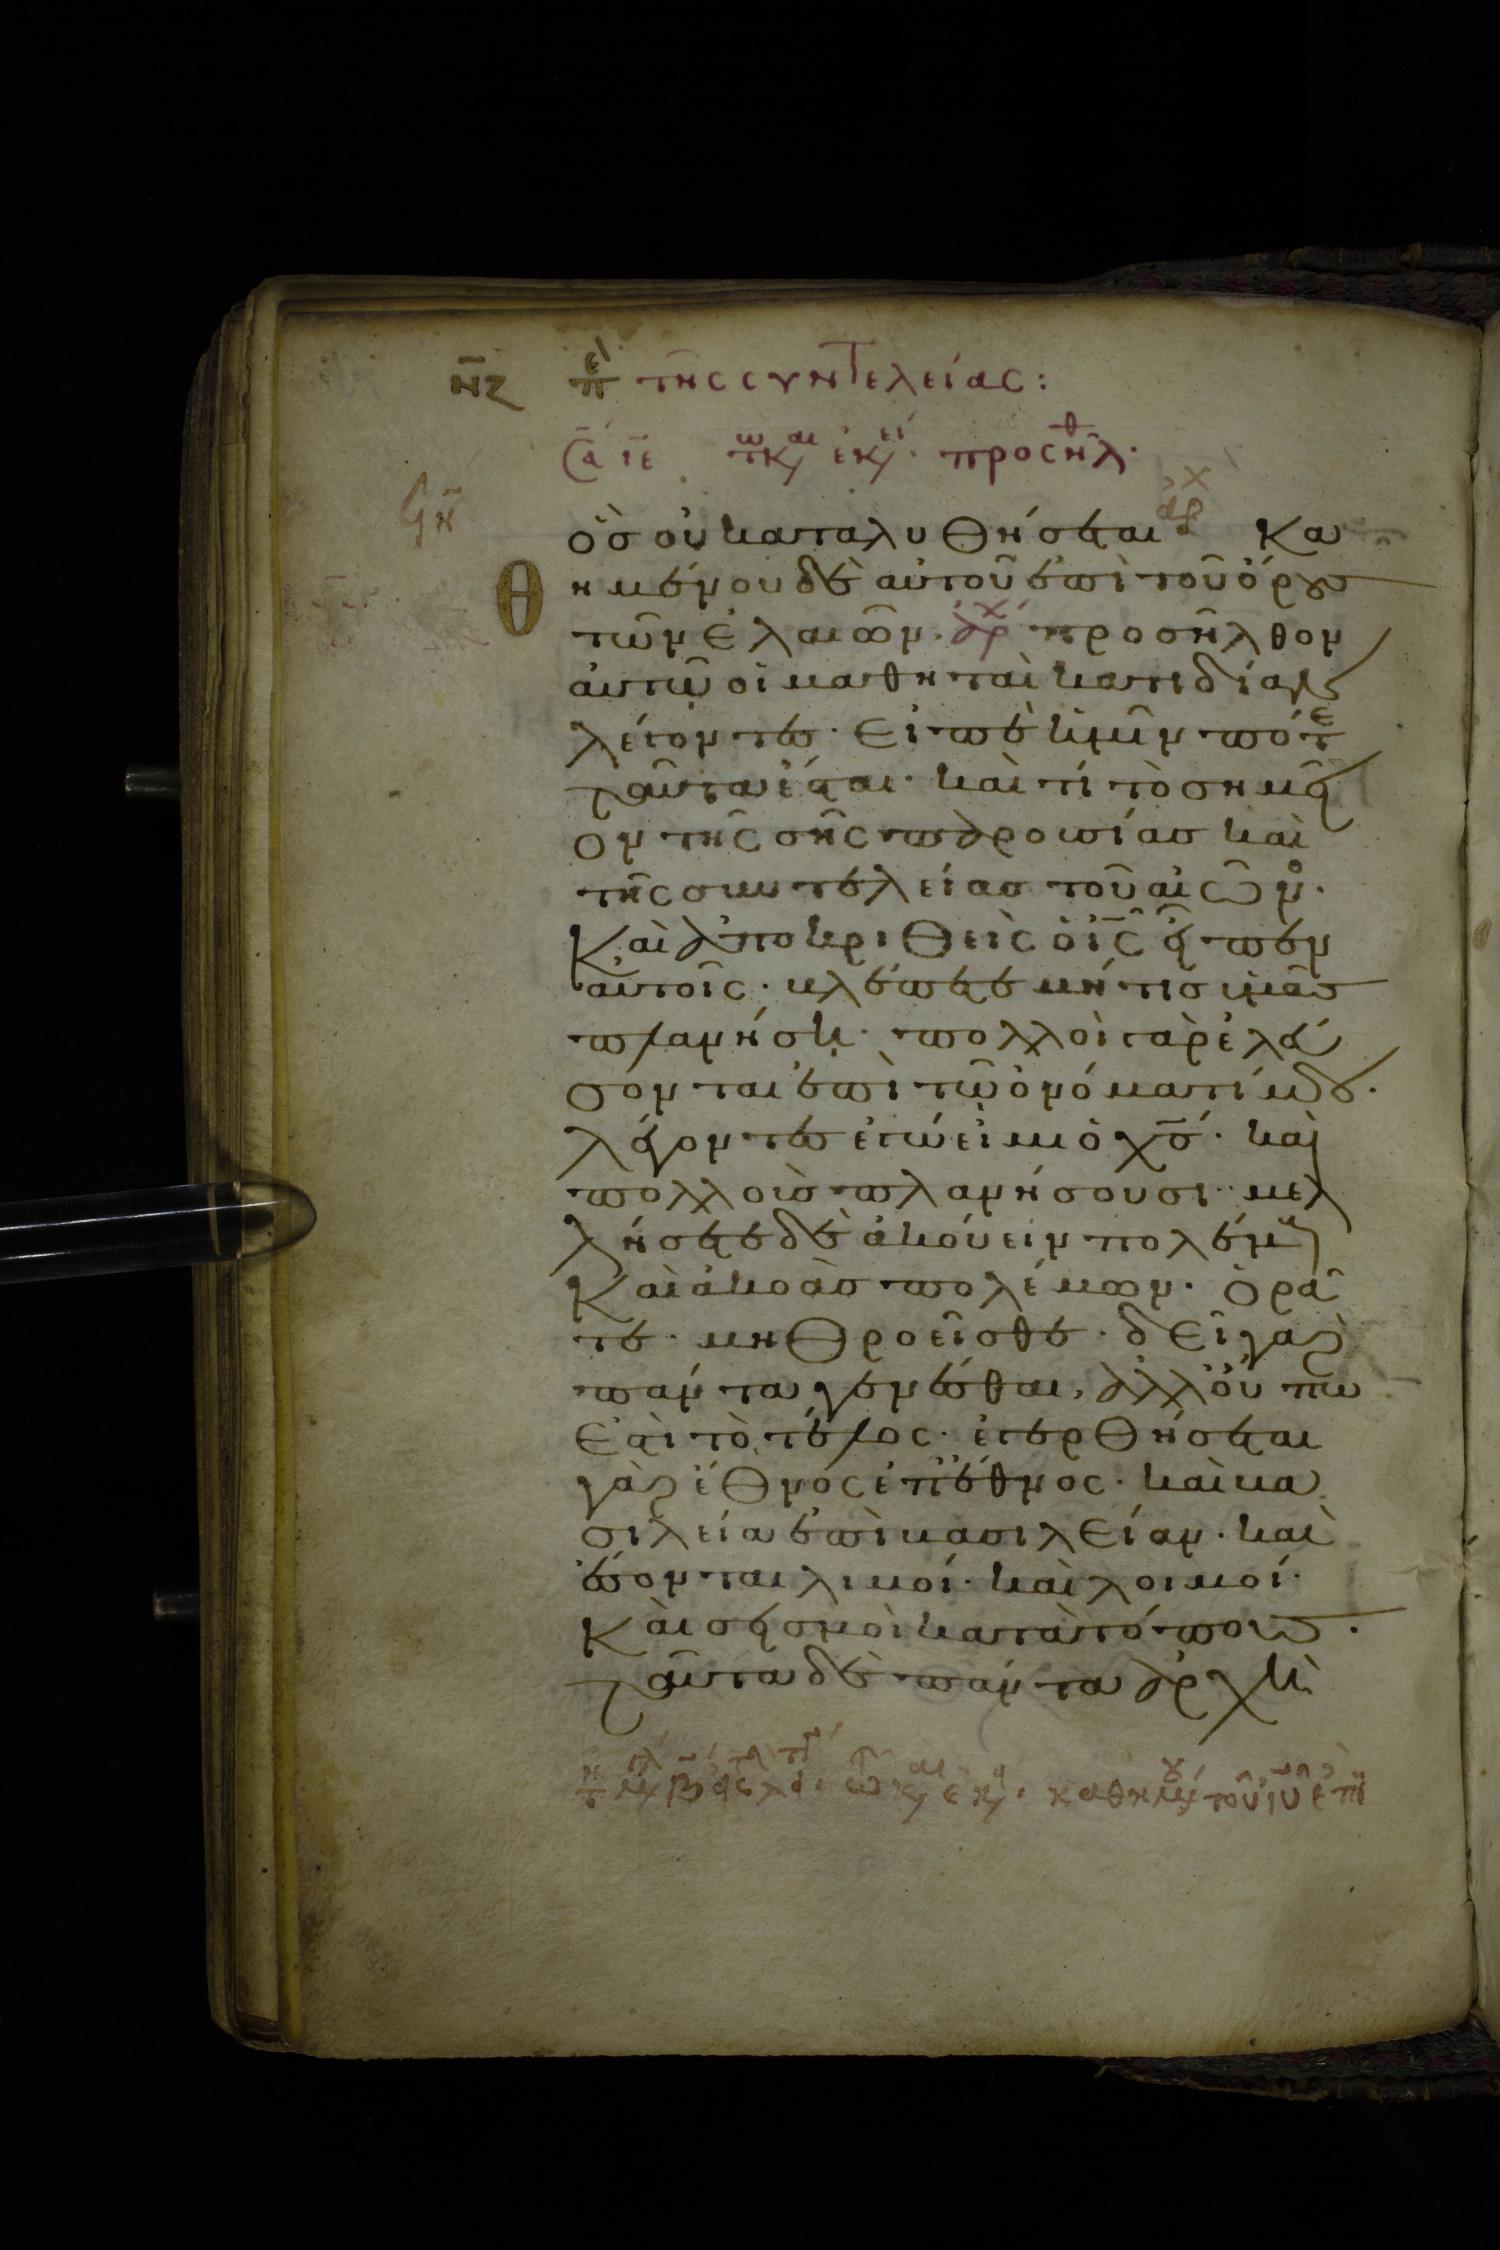 νζ περὶ τῆς συντελείας:
Σα ιε τω κ, αι εκ, ει. προσῆλθ.
ὃς οὐ καταλυθήσεται αρχ Κα
θημένου δὲ αὐτοῦ ἐπὶ τοῦ ὄρους
τῶν ἐλαιῶν. ἀρχ προσῆλθον
αὐτῶ οἱ μαθηταὶ κατιδίαν
λέγοντες. εἰπὲ ἡμῖν πότε
ταῦτα ἔσται. καὶ τί τὸ σημεῖ
ον τῆς σῆς παρουσίας καὶ
τῆς συντελείας τοῦ αἰῶνος.
Καὶ ἀποκριθεὶς ὁ ις εἶπεν
αὐτοῖς. βλέπετε μή τις ὑμᾶς
πλανήση. πολλοὶ γὰρ ἐλεύ
σονται ἐπὶ τῶ ὀνόματί μου.
λέγοντες ἐγώ εἰμι ὁ χς. καὶ
πολλοὺς πλανήσουσι. μελ
λήσετε δὲ ἀκούειν πολέμους
Καὶ ἀκοὰς πολέμων. ὁρᾶ
τε. μὴ θροεῖσθε. δεῖ γὰρ
πάντα γενέσθαι, ἀλλ' οὔπω
ἐστὶ τὸ τέλος. ἐγερθήσεται
γὰρ ἔθνος ἐπ' ἔθνος. καὶ βα
σιλεία ἐπὶ βασιλείαν. καὶ
ἔσονται λιμοί. καὶ λοιμοί.
Καὶ σεισμοὶ κατὰ τόπους.
ταῦτα δὲ πάντα ἀρχὴ
καθημένου τοῦ ιυ ἐπὶ